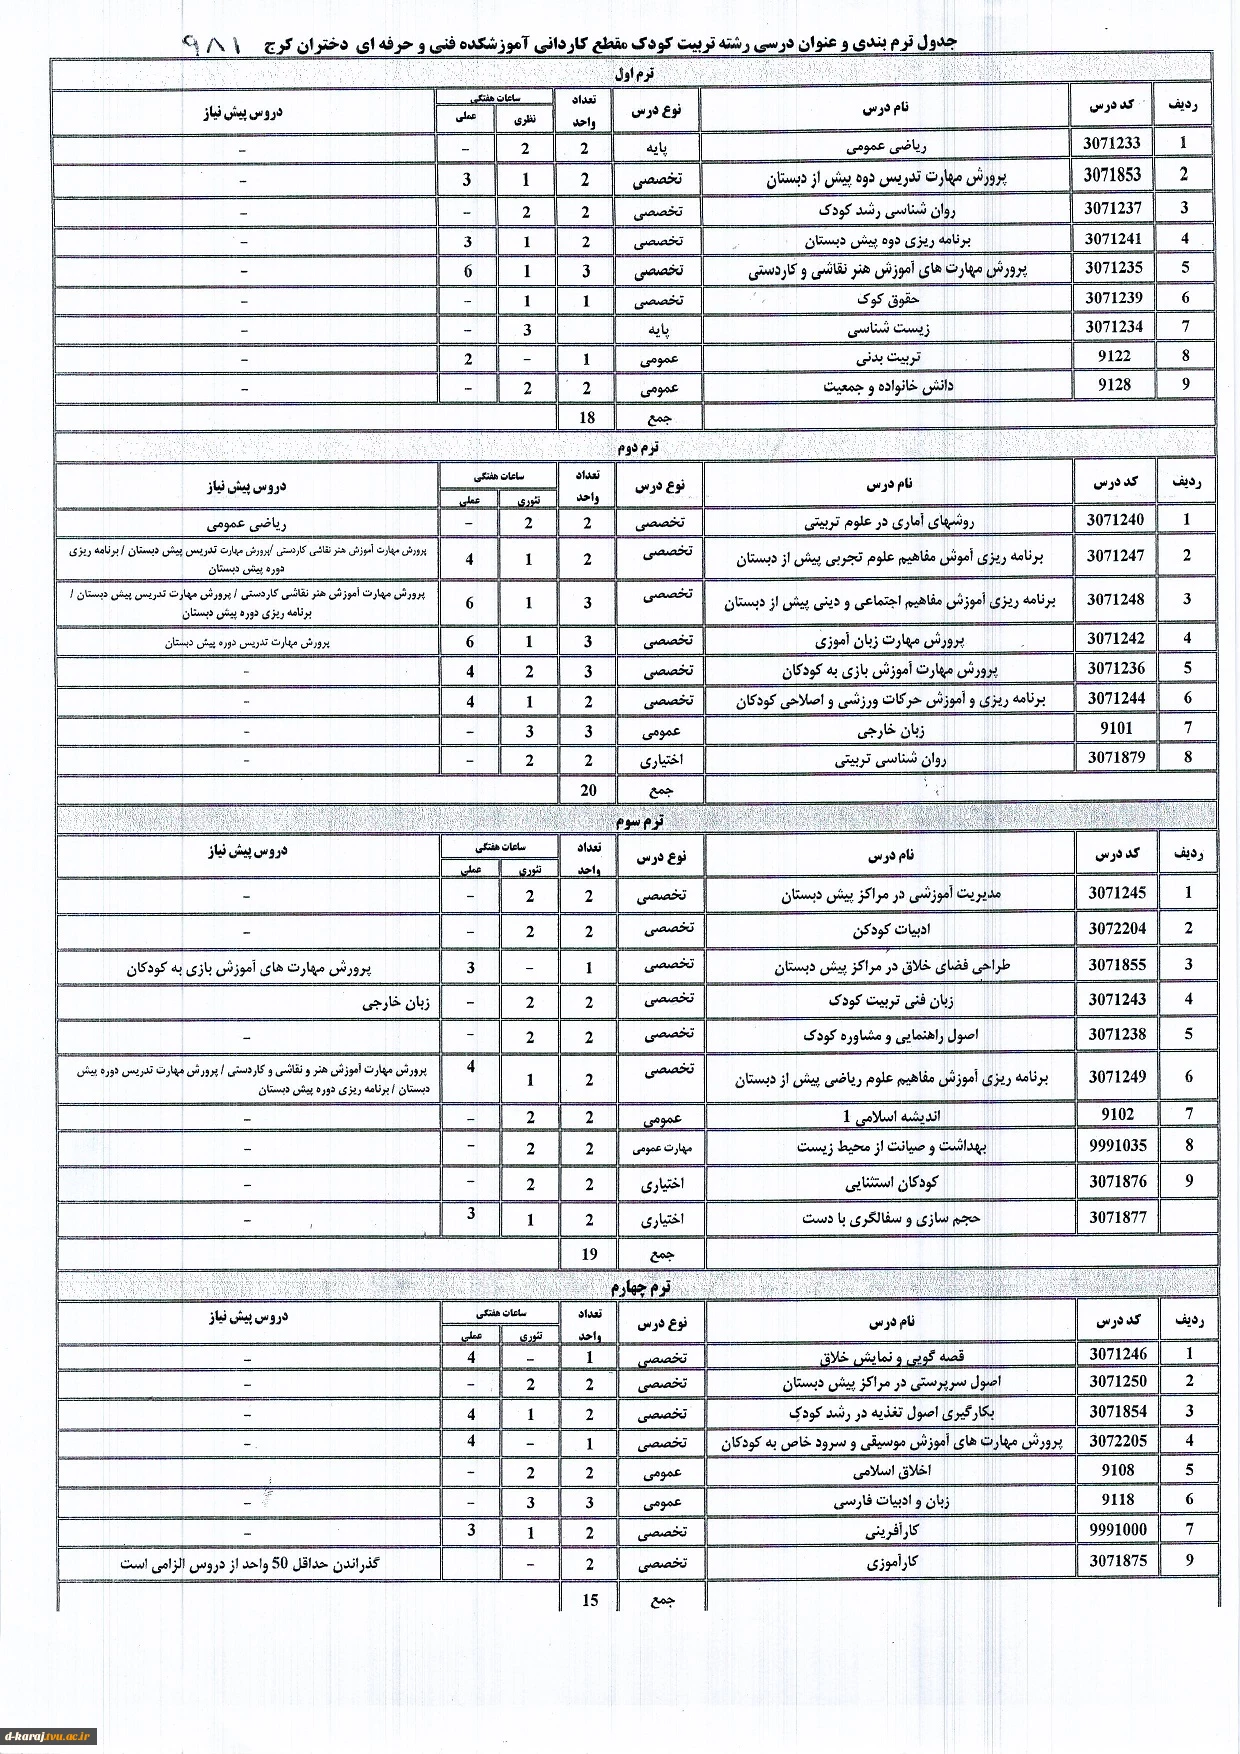 جدول ترم بندی و عنوان درسی رشته تربیت کودک مقطع کاردانی آموزشکده فنی و حرفه ای دختران کرج ۹۸۱
ترم اول
ردیف کد درس نام درس نوع درس تعداد واحد ساعات هفتگی نظری عملی دروس پیش نیاز
1 3071233 ریاضی عمومی پایه 2 2 – –
2 3071853 پرورش مهارت تدریس دوه پیش از دبستان تخصصی 2 1 3 –
3 3071237 روان شناسی رشد کودک تخصصی 2 2 – –
4 3071241 برنامه ریزی دوه پیش دبستان تخصصی 2 1 3 –
5 3071235 پرورش مهارت های آموزش هنر نقاشی و کاردستی تخصصی 3 1 6 –
6 3071239 حقوق کوک تخصصی 1 1 – –
7 3071234 زیست شناسی پایه 3 – –
8 9122 تربیت بدنی عمومی 1 – 2 –
9 9128 دانش خانواده و جمعیت عمومی 2 2 – –
جمع 18
ترم دوم
ردیف کد درس نام درس نوع درس تعداد واحد ساعات هفتگی تئوری عملی دروس پیش نیاز
1 3071240 روشهای آماری در علوم تربیتی تخصصی 2 2 – ریاضی عمومی
2 3071247 برنامه ریزی آموش مفاهیم علوم تجربی پیش از دبستان تخصصی 2 1 4 پرورش مهارت آموزش هنر نقاشی کاردستی /پرورش مهارت تدریس پیش دبستان / برنامه ریزی
دوره پیش دبستان
3 3071248 برنامه ریزی آموزش مفاهیم اجتماعی و دینی پیش از دبستان تخصصی 3 1 6 پرورش مهارت آموزش هنر نقاشی کاردستی / پرورش مهارت تدریس پیش دبستان /
برنامه ریزی دوره پیش دبستان
4 3071242 پرورش مهارت زبان آموزی تخصصی 3 1 6 پرورش مهارت تدریس دوره پیش دبستان
5 3071236 پرورش مهارت آموزش بازی به کودکان تخصصی 3 2 4 –
6 3071244 برنامه ریزی و آموزش حرکات ورزشی و اصلاحی کودکان تخصصی 2 1 4 –
7 9101 زبان خارجی عمومی 3 3 – –
8 3071879 روان شناسی تربیتی اختیاری 2 2 – –
جمع 20
ترم سوم
ردیف کد درس نام درس نوع درس تعداد واحد ساعات هفتگی تئوری عملی دروس پیش نیاز
1 3071245 مدیریت آموزشی در مراکز پیش دبستان تخصصی 2 2 – –
2 3072204 ادبیات کودکن تخصصی 2 2 – –
3 3071855 طراحی فضای خلاق در مراکز پیش دبستان تخصصی 1 – 3 پرورش مهارت های آموزش بازی به کودکان
4 3071243 زبان فنی تربیت کودک تخصصی 2 2 – زبان خارجی
5 3071238 اصول راهنمایی و مشاوره کودک تخصصی 2 2 – –
6 3071249 برنامه ریزی آموزش مفاهیم علوم ریاضی پیش از دبستان تخصصی 2 1 4 پرورش مهارت آموزش هنر و نقاشی و کاردستی / پرورش مهارت تدریس دوره پیش
دبستان / برنامه ریزی دوره پیش دبستان
7 9102 اندیشه اسلامی 1 عمومی 2 2 – –
8 9991035 بهداشت و صیانت از محیط زیست مهارت عمومی 2 2 – –
9 3071876 کودکان استثنایی اختیاری 2 2 – –
3071877 حجم سازی و سفالگری با دست اختیاری 2 1 3 –
جمع 19
ترم چهارم
ردیف کد درس نام درس نوع درس تعداد واحد ساعات هفتگی تئوری عملی دروس پیش نیاز
1 3071246 قصه گویی و نمایش خلاق تخصصی 1 – 4 –
2 3071250 اصول سرپرستی در مراکز پیش دبستان تخصصی 2 2 – –
3 3071854 بکارگیری اصول تغذیه در رشد کودک تخصصی 2 1 4 –
4 3072205 پرورش مهارت های آموزش موسیقی و سرود خاص به کودکان تخصصی 1 – 4 –
5 9108 اخلاق اسلامی عمومی 2 2 – –
6 9118 زبان و ادبیات فارسی عمومی 3 3 – –
7 9991000 کارآفرینی تخصصی 2 1 3 –
9 3071875 کارآموزی تخصصی 2 – گذراندن حداقل 50 واحد از دروس الزامی است
جمع 15
d-karaj.tvu.ac.ir